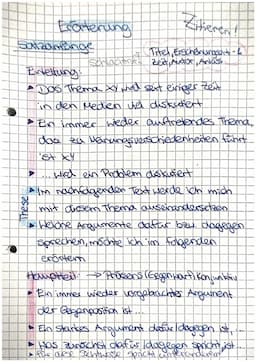 Erörterung
Zitieren!
Satzanfänge
Titel, Erscheinungsort &
Zeit, Autor, Anlass
Einleitung:
▸ Das Thema XY wird seit einiger Zeit
in den Medien viel diskutiert
▸ Ein immer wieder auftretendes Thema,
das zu Meinungsverschiedenheiten führt
ist XY
▸ ... wird ein Problem diskutiert
These
▸ Im nachfolgenden Text werde ich mich
mit diesem Thema auseinandersetzen
▸ Welche Argumente dafür bzw. dagegen
sprechen, möchte ich im folgenden
erörtern
Hauptteil: → Präsens (Gegenwart) Konjunktiv
▸ Ein immer wieder vorgebrachtes Argument
der Gegenposition ist ...
▸ Ein starkes Argument dafür/dagegen ist, ...
▸ Was zunächst dafür/dagegen spricht ist...
▸ Für diese Sichtweise spricht